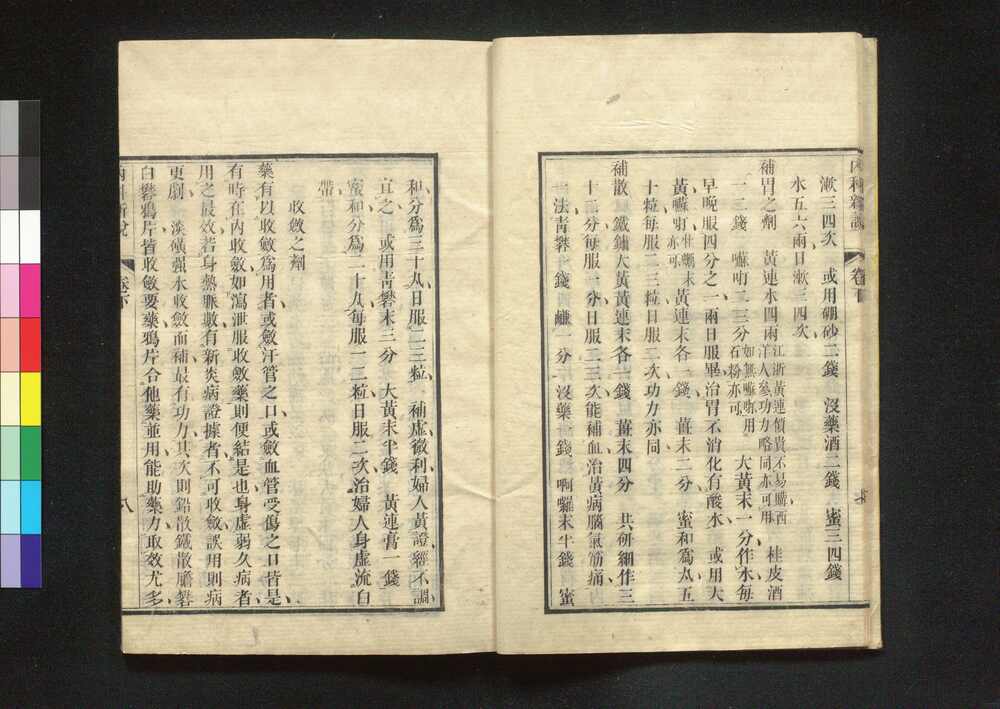 漱三四次　或用硼砂二錢　沒藥酒二錢　蜜三四錢
水五六兩日漱三四次
補胃之劑　黃連水四兩江浙黃連價貴不易購西洋人參功力略同亦可用　桂皮酒
一二錢　嚹叮二三分如無嚹叮用石粉亦可　大黃末一分作水每
早晚服四分之一兩日服畢治胃不消化有酸水　或用大
黃嚹叮牡蠣末亦可黃連末各一錢　薑末二分　蜜和爲丸五
十粒每服二三粒日服二次功力亦同
補散　鐵鏽大黃黃連末各一錢　薑末四分　共研細作三
十二分每服一分日服二三次能補血治黃病腦氣筋痛
一法靑礬一錢　鹻一分　沒藥一錢　啊囉末半錢　蜜
和分爲三十丸日服二三粒　補虛微利婦人黃證經不調
宜之　或用靑礬末三分　大黃末半錢　黃連膏一錢
蜜和分爲二十丸每服一二粒日服二次治婦人身虛流白
帶
收斂之劑
藥有以收斂爲用者或斂汗管之口或斂血管受傷之口皆是
有時在內收斂如瀉泄服收斂藥則便結是也身虛弱久病者
用之最效若身熱脈數有新炎病證據者不可收斂誤用則病
更劇　淡磺强水收斂而補最有功力其次則鉛散鐵散膽礬
白礬鴉片皆收斂要藥鴉片合他藥並用能助藥力取效尤多
內科新說
卷下
八